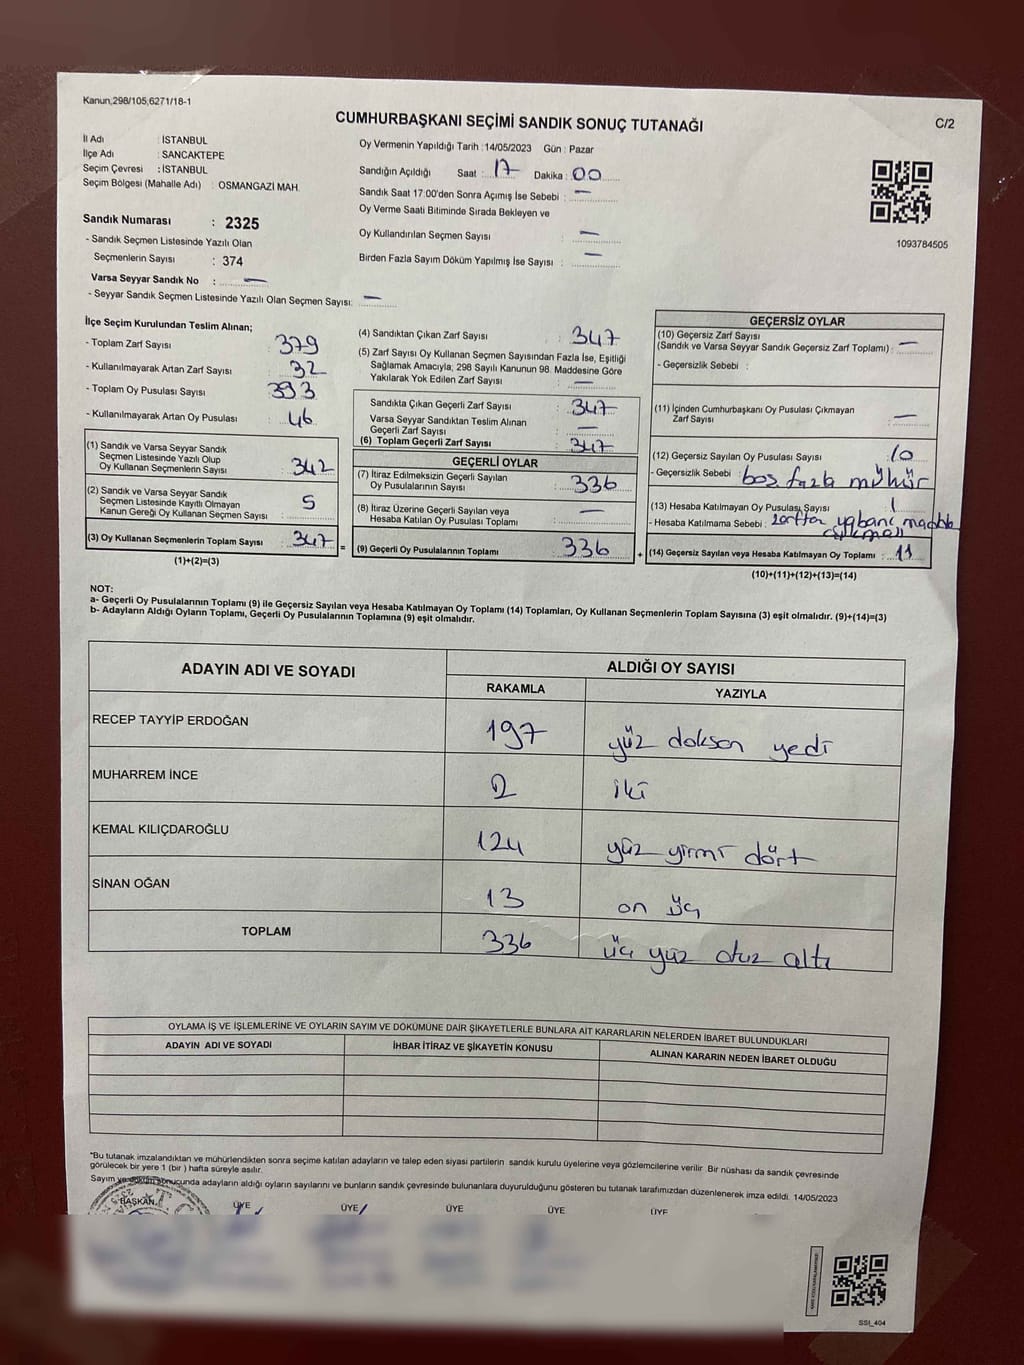 Kanun;298/105,6271/18-1
CUMHURBAŞKANI SEÇİMİ SANDIK SONUÇ TUTANAĞI
C/2
İl Adı : İSTANBUL
İlçe Adı : SANCAKTEPE
Seçim Çevresi : İSTANBUL
Seçim Bölgesi (Mahalle Adı) : OSMANGAZİ MAH.
Sandık Numarası : 2325
- Sandık Seçmen Listesinde Yazılı Olan
Seçmenlerin Sayısı : 374
Varsa Seyyar Sandık No : —
- Seyyar Sandık Seçmen Listesinde Yazılı Olan Seçmen Sayısı: —
Oy Vermenin Yapıldığı Tarih :14/05/2023 Gün : Pazar
Sandığın Açıldığı Saat : 17 Dakika : 00
Sandık Saat 17:00'den Sonra Açımış İse Sebebi : —
Oy Verme Saati Bitiminde Sırada Bekleyen ve
Oy Kullandırılan Seçmen Sayısı : —
Birden Fazla Sayım Döküm Yapılmış İse Sayısı : —
1093784505
İlçe Seçim Kurulundan Teslim Alınan;
- Toplam Zarf Sayısı : 379
- Kullanılmayarak Artan Zarf Sayısı : 32
- Toplam Oy Pusulası Sayısı : 393
- Kullanılmayarak Artan Oy Pusulası : 46
(1) Sandık ve Varsa Seyyar Sandık
Seçmen Listesinde Yazılı Olup
Oy Kullanan Seçmenlerin Sayısı : 342
(2) Sandık ve Varsa Seyyar Sandık
Seçmen Listesinde Kayıtlı Olmayan
Kanun Gereği Oy Kullanan Seçmen Sayısı : 5
(3) Oy Kullanan Seçmenlerin Toplam Sayısı : 347
(1)+(2)=(3)
=
(4) Sandıktan Çıkan Zarf Sayısı : 347
(5) Zarf Sayısı Oy Kullanan Seçmen Sayısından Fazla İse, Eşitliği
Sağlamak Amacıyla, 298 Sayılı Kanunun 98. Maddesine Göre
Yakılarak Yok Edilen Zarf Sayısı : —
Sandıkta Çıkan Geçerli Zarf Sayısı : 347
Varsa Seyyar Sandıktan Teslim Alınan
Geçerli Zarf Sayısı : —
(6) Toplam Geçerli Zarf Sayısı : 347
GEÇERLİ OYLAR
(7) İtiraz Edilmeksizin Geçerli Sayılan
Oy Pusulalarının Sayısı : 336
(8) İtiraz Üzerine Geçerli Sayılan veya
Hesaba Katılan Oy Pusulası Toplamı : —
(9) Geçerli Oy Pusulalarının Toplamı : 336
+
GEÇERSİZ OYLAR
(10) Geçersiz Zarf Sayısı
(Sandık ve Varsa Seyyar Sandık Geçersiz Zarf Toplamı) : —
- Geçersizlik Sebebi :
(11) İçinden Cumhurbaşkanı Oy Pusulası Çıkmayan
Zarf Sayısı : —
(12) Geçersiz Sayılan Oy Pusulası Sayısı : 10
- Geçersizlik Sebebi : boş fazla mühür
(13) Hesaba Katılmayan Oy Pusulası Sayısı : 1
- Hesaba Katılmama Sebebi : zarftan yabancı madde
çıkması
(14) Geçersiz Sayılan veya Hesaba Katılmayan Oy Toplamı : 11
(10)+(11)+(12)+(13)=(14)
NOT:
a- Geçerli Oy Pusulalarının Toplamı (9) ile Geçersiz Sayılan veya Hesaba Katılmayan Oy Toplamı (14) Toplamları, Oy Kullanan Seçmenlerin Toplam Sayısına (3) eşit olmalıdır. (9)+(14)=(3)
b- Adayların Aldığı Oyların Toplamı, Geçerli Oy Pusulalarının Toplamına (9) eşit olmalıdır.
ADAYIN ADI VE SOYADI
ALDIĞI OY SAYISI
RAKAMLA YAZIYLA
RECEP TAYYİP ERDOĞAN 197 yüz doksan yedi
MUHARREM İNCE 2 iki
KEMAL KILIÇDAROĞLU 124 yüz yirmi dört
SİNAN OĞAN 13 on üç
TOPLAM 336 üç yüz otuz altı
OYLAMA İŞ VE İŞLEMLERİNE VE OYLARIN SAYIM VE DÖKÜMÜNE DAİR ŞİKAYETLERLE BUNLARA AİT KARARLARIN NELERDEN İBARET BULUNDUKLARI
ADAYIN ADI VE SOYADI İHBAR İTİRAZ VE ŞİKAYETİN KONUSU ALINAN KARARIN NEDEN İBARET OLDUĞU
"Bu tutanak imzalandıktan ve mühürlendikten sonra seçime katılan adayların ve talep eden siyasi partilerin sandık kurulu üyelerine veya gözlemcilerine verilir Bir nüshası da sandık çevresinde
görülecek bir yere 1 (bir ) hafta süreyle asılır.
Sayım ve döküm sonucunda adayların aldığı oyların sayılarını ve bunların sandık çevresinde bulunanlara duyurulduğunu gösteren bu tutanak tarafımızdan düzenlenerek imza edildi. 14/05/2023
BAŞKAN ÜYE ÜYE ÜYE ÜYE ÜYE
SSI_404